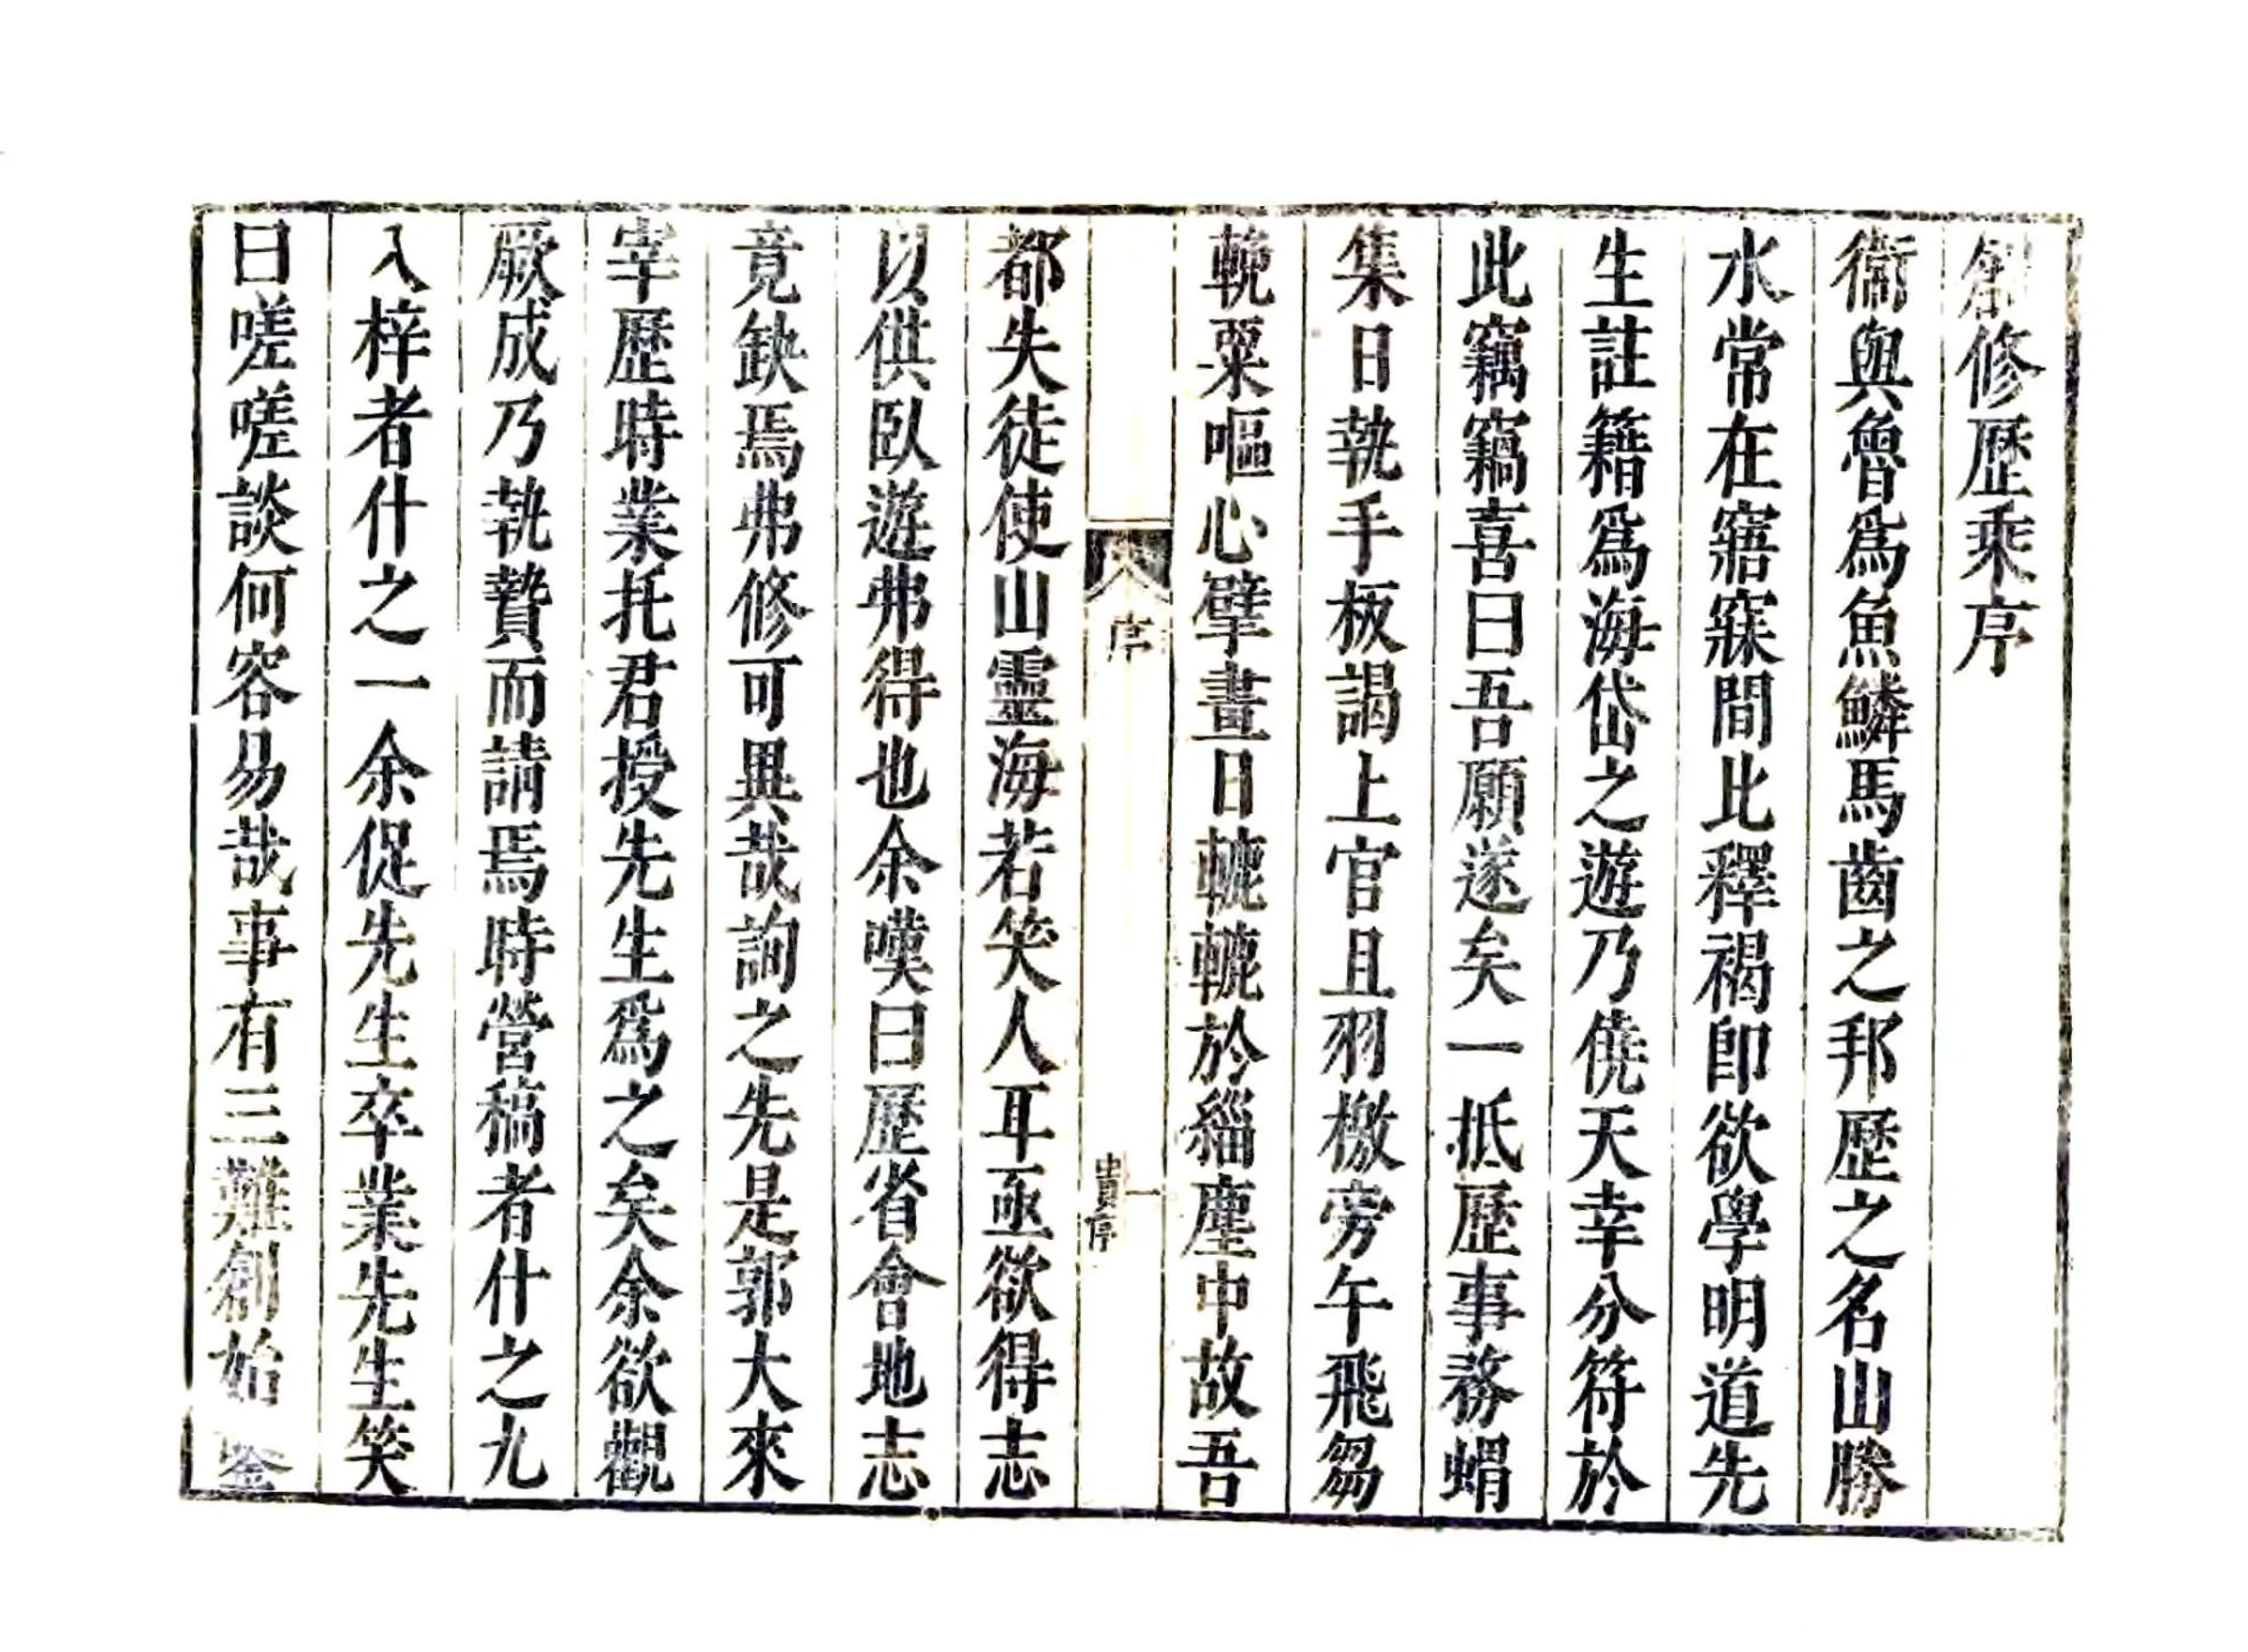 創修歷乘序
衞與魯爲魚鱗馬齒之邦歷之名山勝
水常在寤寐間比釋褐卽欲學明道先
生註籍爲海岱之遊乃僥天幸分符於
此竊竊喜曰吾願遂矣一抵歷事務蝟
集日執手板謁上官且羽檄旁午飛芻
輓粟嘔心擘畫日轆轆於緇塵中故吾
序
一
貫序
都失徒使山靈海若笑人耳亟欲得志
以供臥遊弗得也余嘆曰歷省會地志
竟缺焉弗修可異哉詢之先是郭大來
宰歷時業托君授先生爲之矣余欲觀
厥成乃執贄而請焉時營稿者什之九
入梓者什之一余促先生卒業先生笑
曰嗟嗟談何容易哉事有三難創始